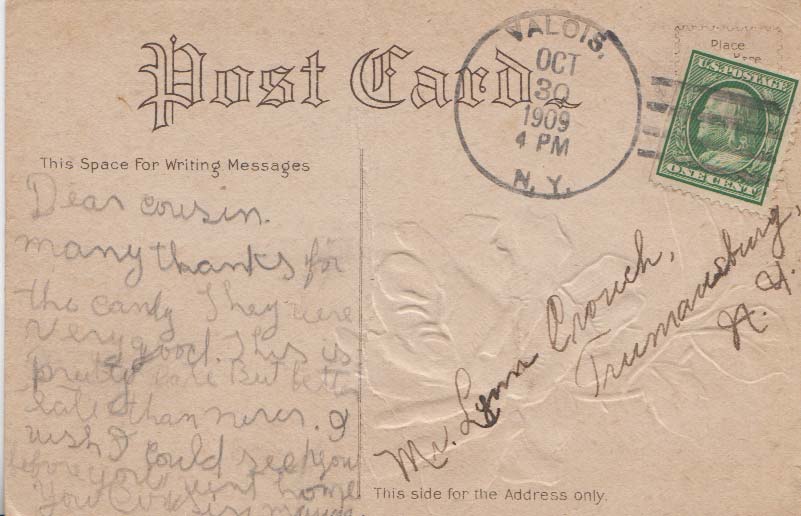 Post Card
VALOIS,
OCT
30
1909
4 PM
N. Y.
Place
U.S. POSTAGE
ONE CENT
This Space For Writing Messages
Dear cousin.
many thanks for
the candy They were
very good. This is
pretty late But better
late than never. I
wish I could see you
before you went home
You Cousin
Mr. Lynn Crouch,
Trumansburg,
N. Y.
This side for the Address only.